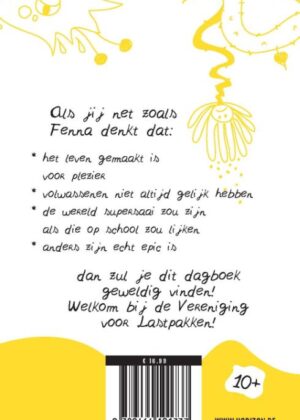 Als jij net zoals
Fenna denkt dat:
* het leven gemaakt is
voor plezier
* volwassenen niet altijd gelijk hebben
* de wereld supersaai zou zijn
als die op school zou lijken
* anders zijn echt epic is
dan zul je dit dagboek
geweldig vinden!
Welkom bij de Vereniging
voor Lastpakken!
10+